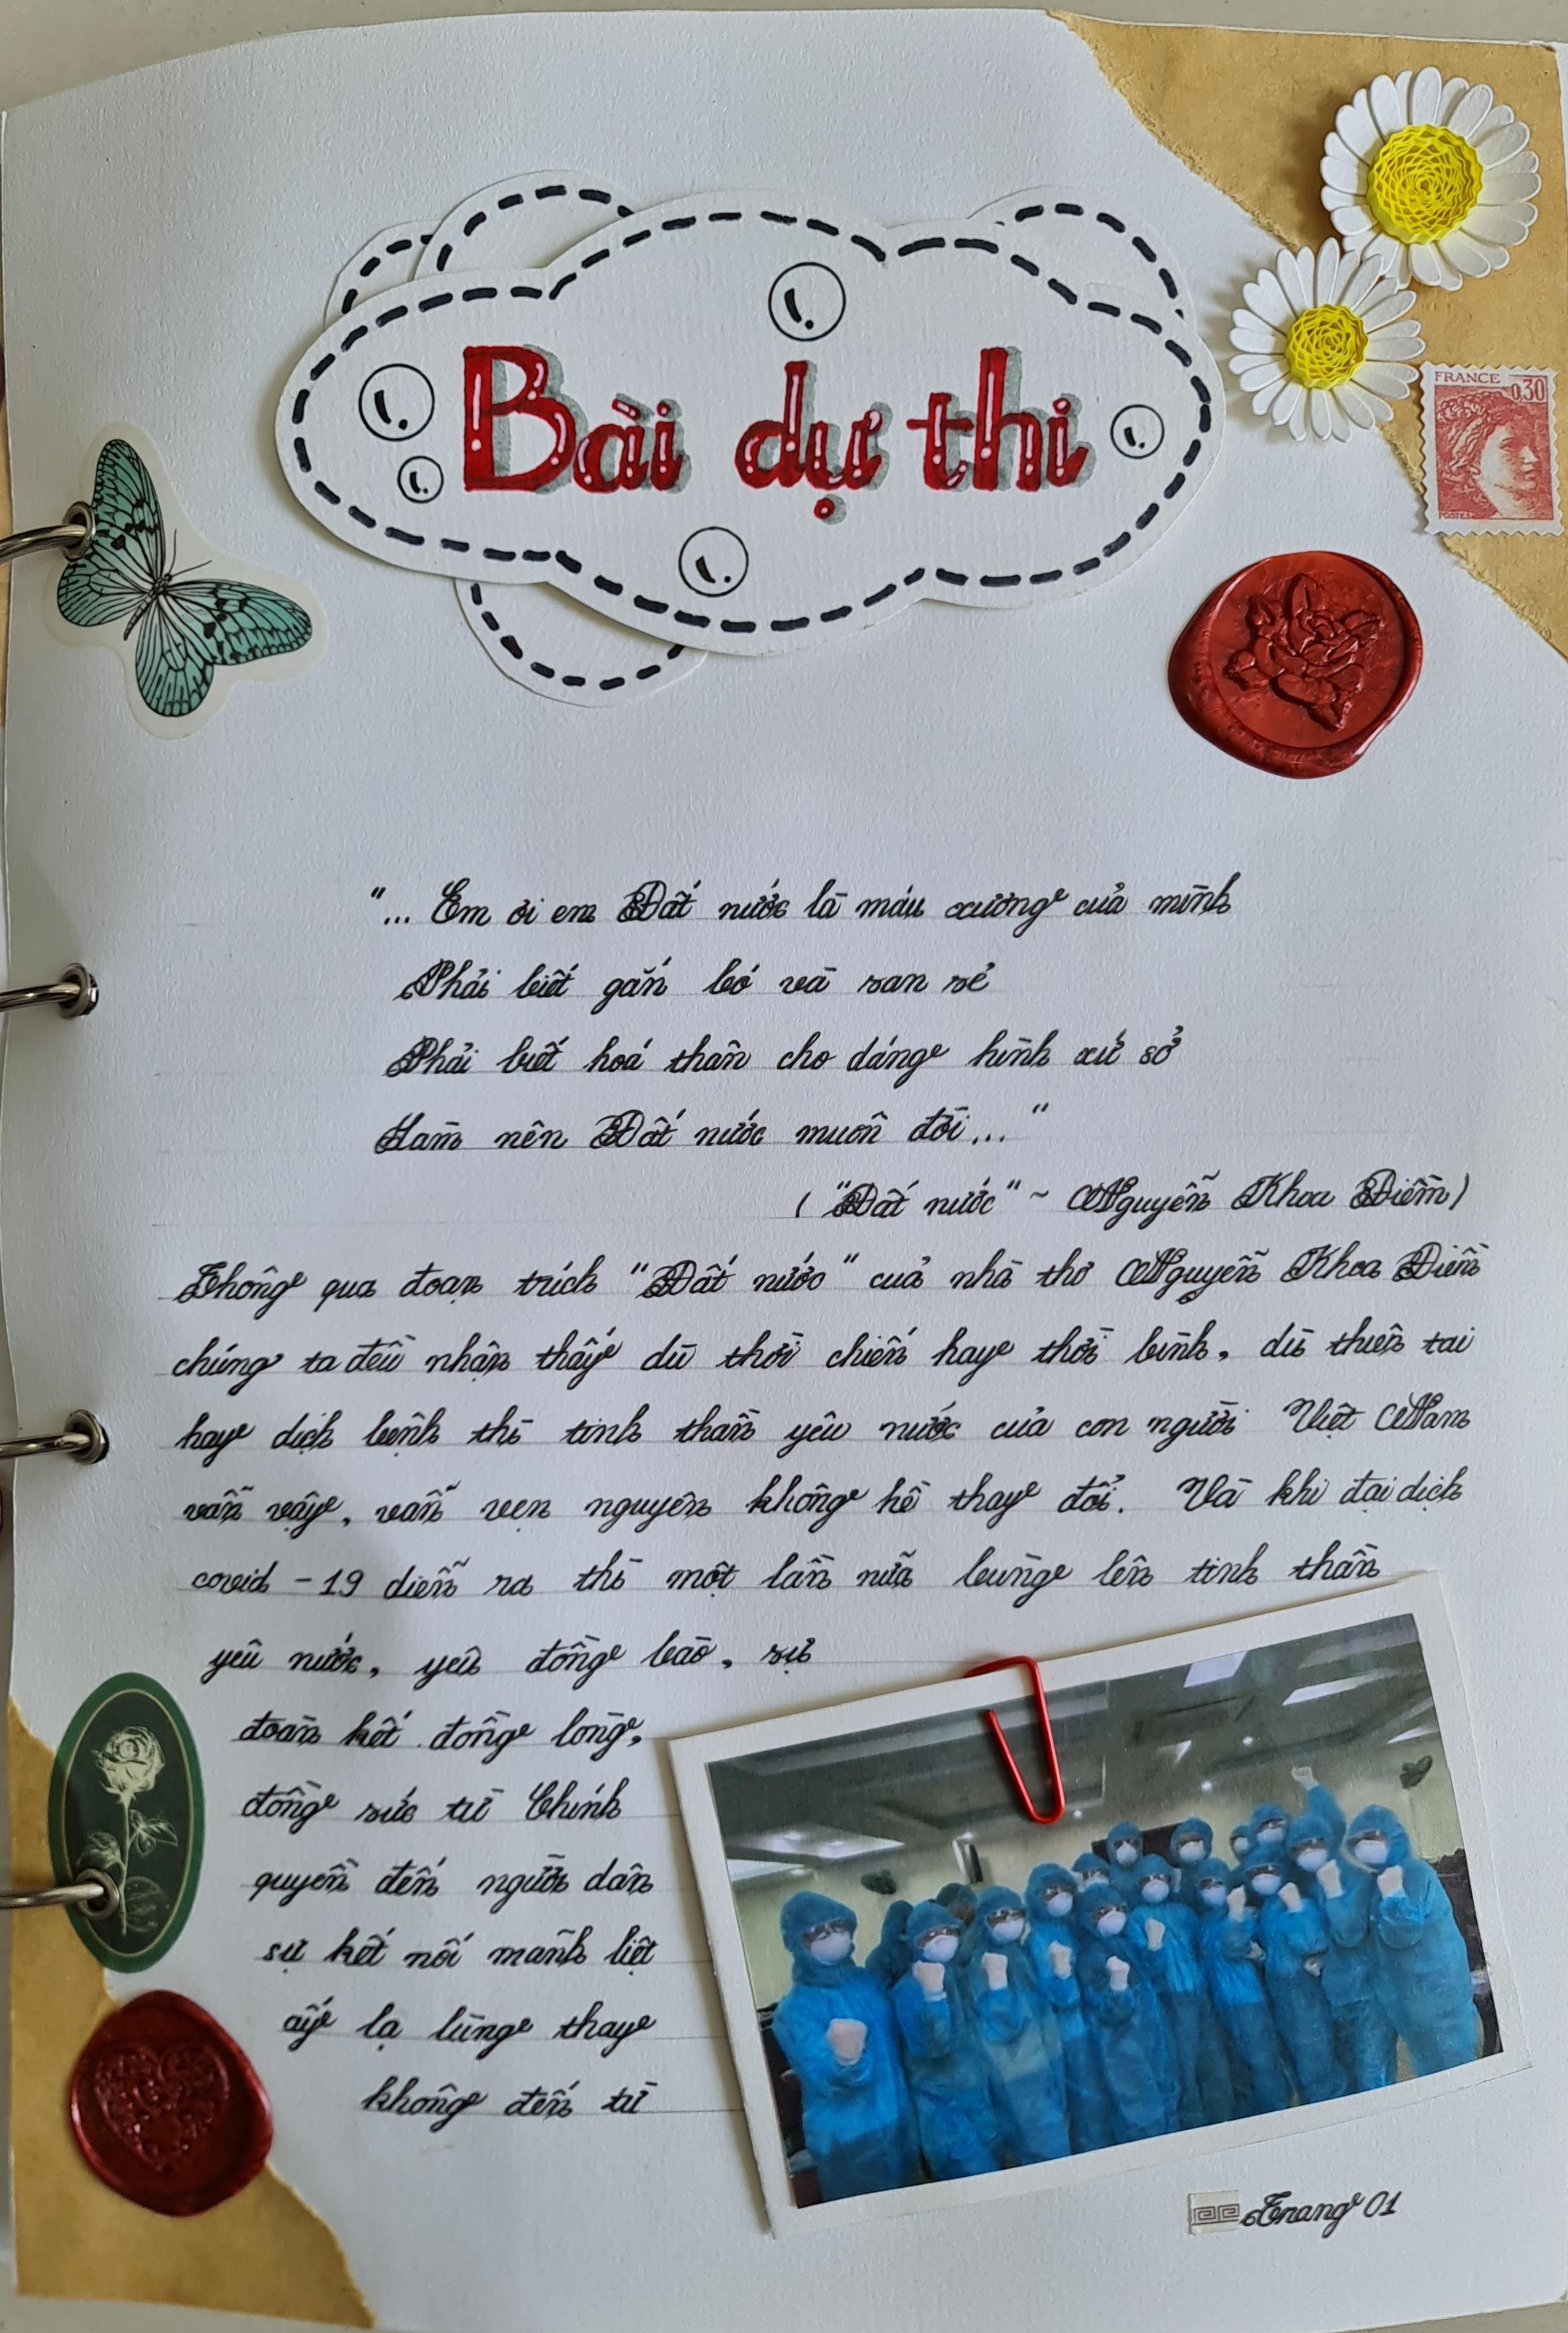 Bài dự thi
FRANCE 0,30
POSTES
"... Em ơi em Đất nước là máu xương của mình
Phải biết gắn bó và san sẻ
Phải biết hoá thân cho dáng hình xứ sở
Làm nên Đất nước muôn đời... "
( "Đất nước" ~ Nguyễn Khoa Điềm)
Thông qua đoạn trích "Đất nước" của nhà thơ Nguyễn Khoa Điềm
chúng ta đều nhận thấy dù thời chiến hay thời bình, dù thiên tai
hay dịch bệnh thì tinh thần yêu nước của con người Việt Nam
vẫn vậy, vẫn vẹn nguyên không hề thay đổi. Và khi đại dịch
covid - 19 diễn ra thì một lần nữa bùng lên tinh thần
yêu nước, yêu đồng bào, sự
đoàn kết đồng lòng,
đồng sức từ Chính
quyền đến người dân
sự kết nối mãnh liệt
ấy lạ lùng thay
không đến từ
Trang 01